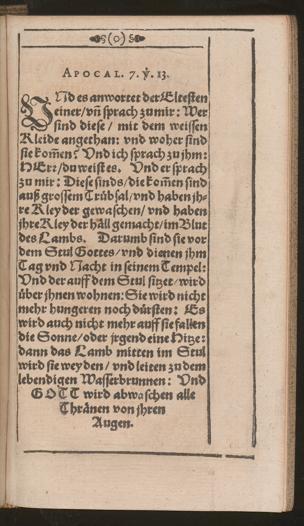 (o)
APOCAL. 7. ỹ. 13.
VNd es anwortet der Eltesten
einer/vñ sprach zu mir: Wer
sind diese/ mit dem weissen
Kleide angethan: vnd woher sind
sie kom̃en? Vnd ich sprach zu jhm:
HErr/du weist es. Vnd er sprach
zu mir: Diese sinds/die kom̃en sind
auß grossem Trübsal/vnd haben jh-
re Kleyder gewaschen/vnd haben
jhre Kleyder häll gemacht/im Blut
des Lambs. Darumb sind sie vor
dem Stul Gottes/vnd dienen jhm
Tag vnd Nacht in seinem Tempel:
Vnd der auff dem Stul sitzet/wird
über jhnen wohnen: Sie wird nicht
mehr hungeren noch dürsten: Es
wird auch nicht mehr auff sie fallen
die Sonne/oder jrgend eine Hitze:
dann das Lamb mitten im Stul
wird sie weyden/vnd leiten zu dem
lebendigen Wasserbrunnen: Vnd
GOTT wird abwaschen alle
Thränen von jhren
Augen.